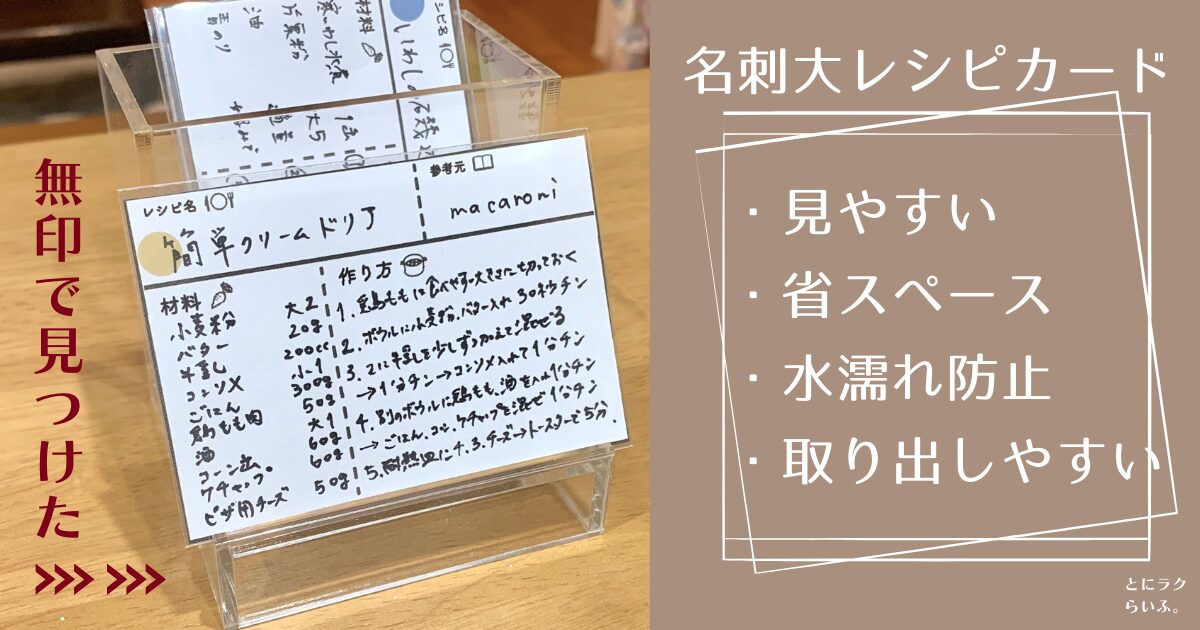 無印で見つけた
名刺大レシピカード
・見やすい
・省スペース
・水濡れ防止
・取り出しやすい
とにラク
らいふ。
レシピ名
簡単クリームドリア
参考元
macaroni
材料
小麦粉 大2
バター 20g
牛乳 200cc
コンソメ 小1
ごはん 300g
鶏もも肉 50g
油 大1
コーン缶 60g
ケチャップ 60g
ピザ用チーズ 50g
作り方
1.鶏ももは食べやすい大きさに切っておく
2.ボウルに小麦粉、バター入れ30秒チン
3.2に牛乳を少しずつ加えて混ぜる
→1分チン→コンソメ入れて1分チン
4.別のボウルに鶏もも、油を入れ1分チン
→ごはん、コーン、ケチャップを混ぜ1分チン
5.耐熱皿に4.3.チーズ→トースターで5分.
レシピ名
いわしの
材料
片栗粉
油
1缶
大5
適量